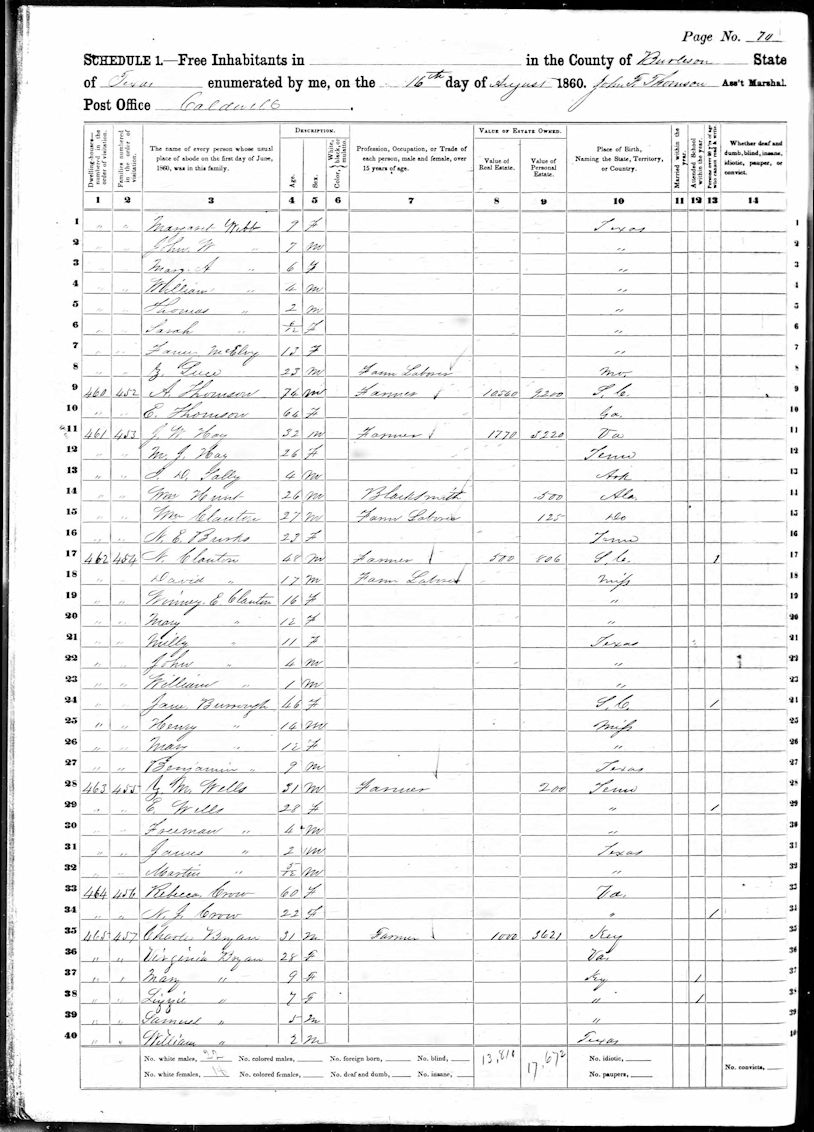 Page No. 70
SCHEDULE 1.—Free Inhabitants in in the County of Burleson State
of Texas enumerated by me, on the 16th day of August 1860. John F. Thomson Ass't Marshal.
Post Office Caldwell.
DESCRIPTION. VALUE OF ESTATE OWNED.
Dwelling-houses—numbered in the order of visitation. Families numbered in the order of visitation. The name of every person whose usual place of abode on the first day of June, 1860, was in this family. Age. Sex. Color, White, black, or mulatto. Profession, Occupation, or Trade of each person, male and female, over 15 years of age. Value of Real Estate. Value of Personal Estate. Place of Birth, Naming the State, Territory, or Country. Married within the year. Attended School within the year. Persons over 20 y'rs of age who cannot read & write. Whether deaf and dumb, blind, insane, idiotic, pauper, or convict.
1 2 3 4 5 6 7 8 9 10 11 12 13 14
1 " " Margaret Webb 9 F Texas 1
2 " " John W " 7 M " 2
3 " " Mary A " 6 F " 3
4 " " William " 4 M " 4
5 " " Thomas " 2 M " 5
6 " " Sarah " F " 6
7 " " McElvy 13 F " 7
8 " " 23 M Farm Laborer Mo. 8
9 460 452 A. Thomson 76 M Farmer 10560 9200 S. C. 9
10 " " E. Thomson 64 F Ga. 10
11 461 453 J. W. Hay 32 M Farmer 1770 5220 Va 11
12 " " M. J. Hay 26 F Tenn 12
13 " " D. 4 M Ark 13
14 " " Wm Hunt 26 M Blacksmith 500 Ala. 14
15 " " Wm Clanton 27 M Farm Laborer 125 Do 15
16 " " N. E. Burks 23 F Tenn 16
17 462 454 N. Clanton 48 M Farmer 500 806 S. C. 1 17
18 " " David " 17 M Farm Laborer Miss 18
19 " " Winney E Clanton 16 F " 19
20 " " Mary " 12 F " 20
21 " " Milly " 11 F Texas 21
22 " " John " 4 M " 22
23 " " William " 1 M " 23
24 " " Jane Burrough 46 F S. C. 1 24
25 " " Henry " 14 M Miss 25
26 " " Mary " 12 F " 26
27 " " Benjamin " 9 M Texas 27
28 463 455 M. Wells 31 M Farmer 200 Tenn 28
29 " " E. Wells 28 F " 1 29
30 " " Freeman " 4 M " 30
31 " " James " 2 M Texas 31
32 " " Martin " 5/12 M " 32
33 464 456 Rebecca Crow 60 F Va. 33
34 " " N. J. Crow 22 F " 1 34
35 465 457 Charles Bryan 31 M Farmer 1000 3621 Key 35
36 " " Virginia Bryan 28 F Va. 36
37 " " Mary " 9 F Ky 1 37
38 " " Lizzie " 7 F " 1 38
39 " " Samuel " 5 M " 39
40 " " William " 2 M Texas 40
No. white males, 22 No. colored males, No. foreign born, No. blind, 13,810 17,672 No. idiotic,
No. white females, 18 No. colored females, No. deaf and dumb, No. insane, No. paupers, No. convicts,